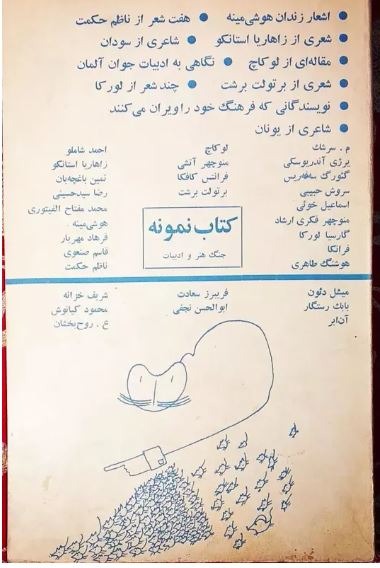 ● اشعار زندان هوشی‌مینه ● هفت شعر از ناظم حکمت
● شعری از زاهاریا استانکو ● شاعری از سودان
● مقاله‌ای از لوکاچ ● نگاهی به ادبیات جوان آلمان
● شعری از برتولت برشت ● چند شعر از لورکا
● نویسندگانی که فرهنگ خود را ویران می‌کنند
● شاعری از یونان
م . سرشک
یرژی آندریوسکی
گئورگ سه‌فه‌ریس
سروش حبیبی
اسماعیل خوئی
منوچهر فکری ارشاد
گارسیا لورکا
فرانکا
هوشنگ طاهری
لوکاچ
منوچهر آتشی
فرانتس کافکا
برتولت برشت
احمد شاملو
زاهاریا استانکو
ثمین باغچه‌بان
رضا سیدحسینی
محمد مفتاح الفیتوری
هوشی‌مینه
فرهاد مهریار
قاسم صنعوی
ناظم حکمت
کتاب نمونه
جنگ هنر و ادبیات
میشل دئون
بابک رستگار
آن‌ابر
فریبرز سعادت
ابوالحسن نجفی
شریف خزانه
محمود کیانوش
ع . روح‌بخشان